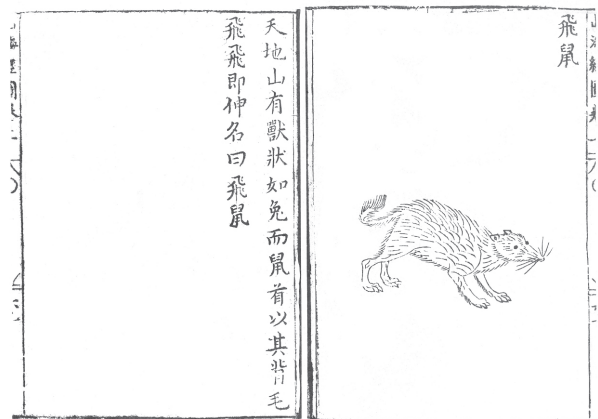 飛鼠
天地山有獸狀如兔而鼠首以其背毛
飛飛即伸名曰飛鼠